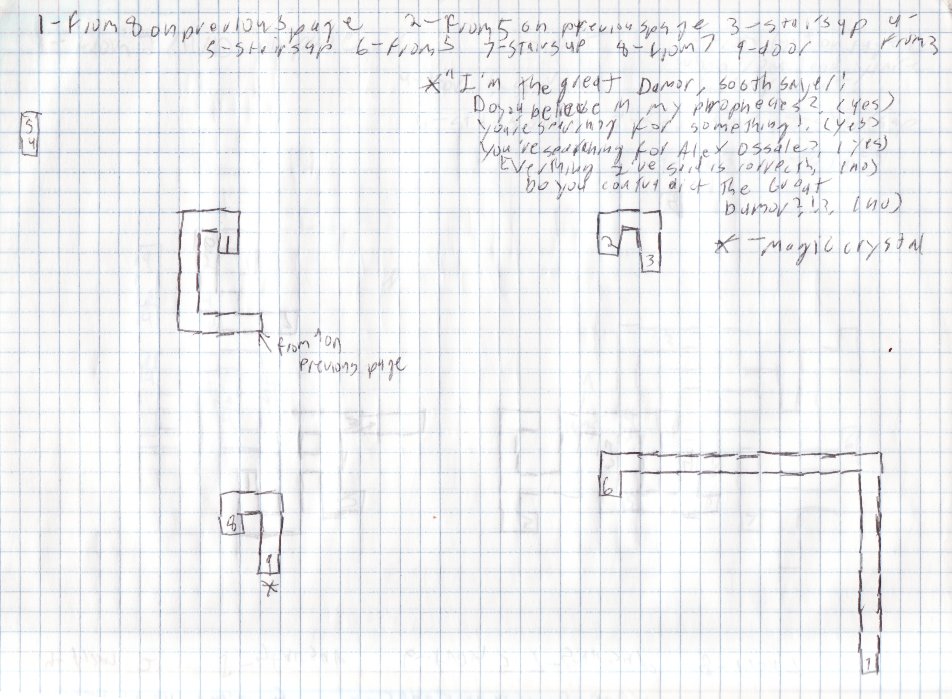 1-from 8 on previous page 2-from 5 on previous page 3-stairs up 4-from 3
5-stairs up 6-from 5 7-stairs up 8-from 7 9-door
* "I'm the great Damor, soothsayer!
Do you believe in my prophecies? (yes)
You're searching for something!, (yes)
You're searching for Alex Ossale?, (yes)
Everthing I've said is correct?, (no)
Do you contradict the Great
Damor?!?, (no)
5
4
1
2
3
* - magic crystal
from 1 on
previous page
6
8
9
*
7